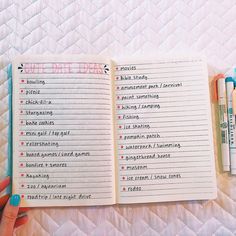 CUTE DATE IDEAS
bowling
picnic
chick-fil-a
Stargazing
bake cookies
mini golf / top golf
rollerskating
board games / card games
bonfire + s'mores
Kayaking
zoo / aquarium
roadtrip / late night drive
movies
Bible Study
amusement park / carnival
paint something
hiking / camping
fishing
ice skating
pumpkin patch
waterpark / swimming
gingerbread house
museum
ice cream / snow cones
rodeo